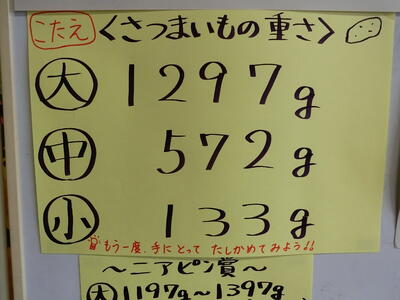 こたえ 〈さつまいもの重さ〉
大 1297g
中 572g
小 133g
もう一度、手にとって たしかめてみよう!!
～ニアピン賞～
大 1197g～1397g